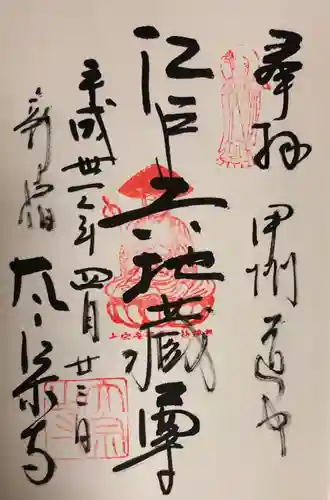 奉拝
甲州道中
江戸六地蔵尊
平成卅一年四月廿三日
新宿
太宗寺